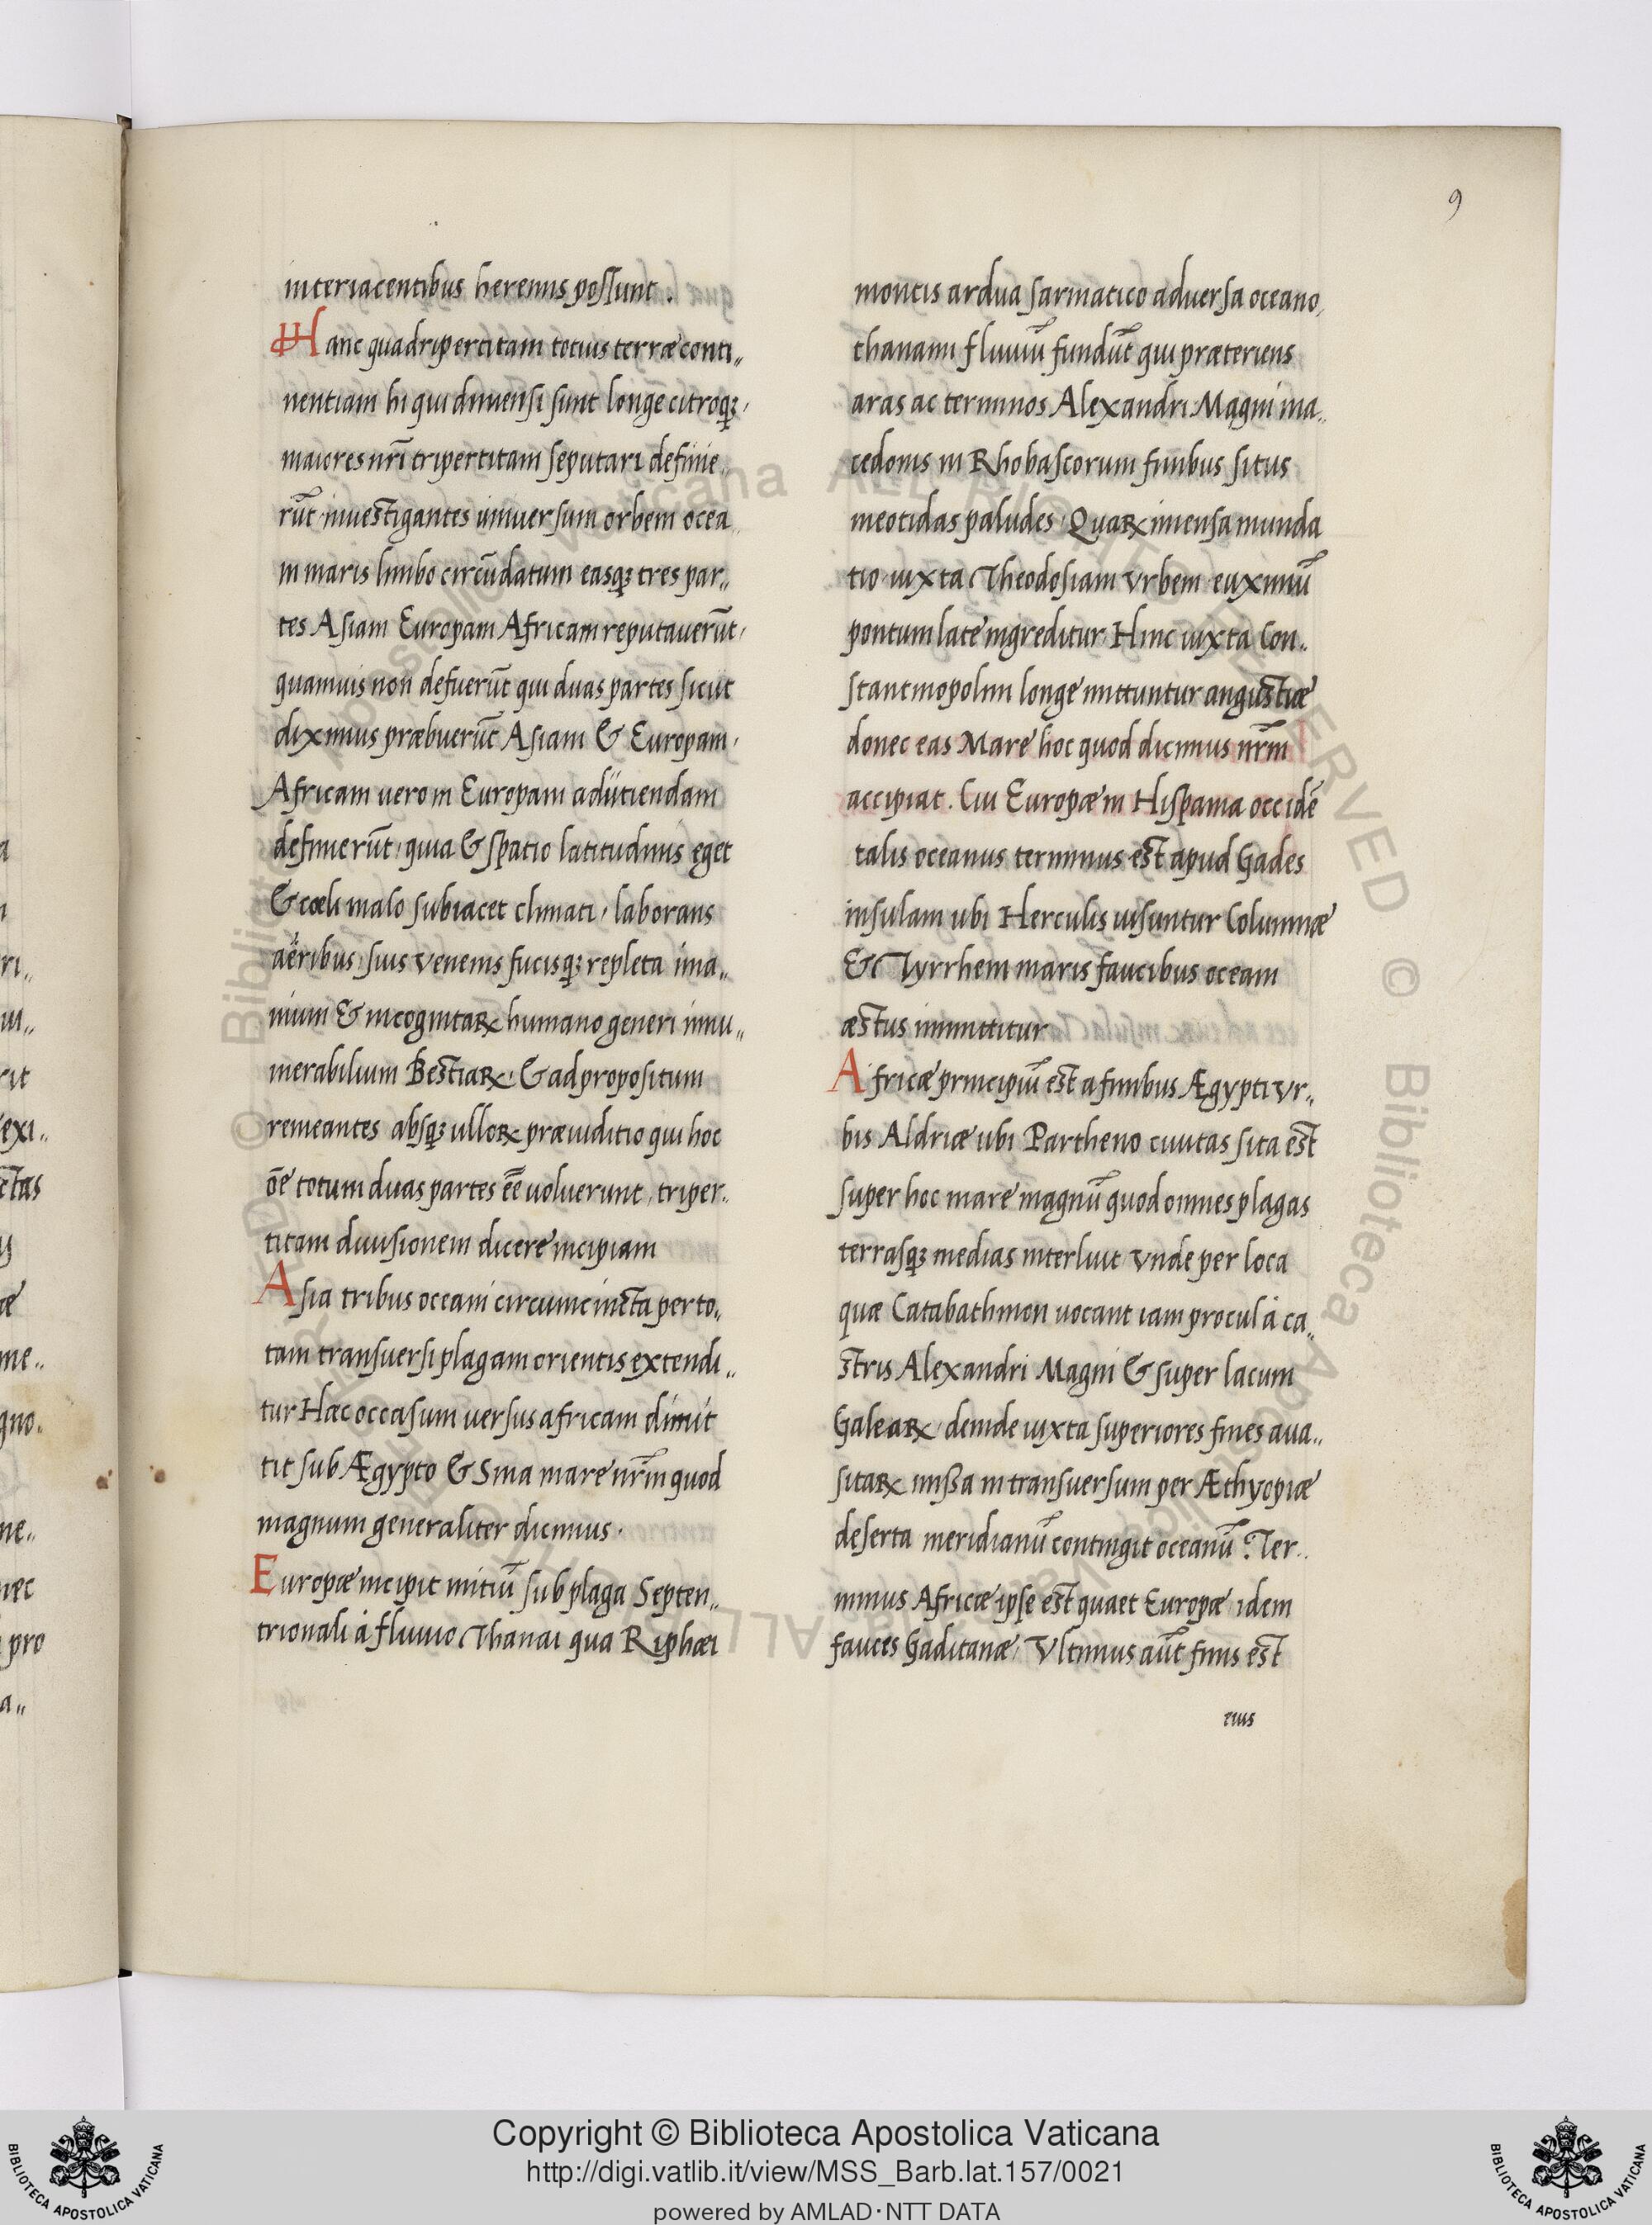 9
interiacentibus heremis possunt.
Hanc quadripertitam totius terræ conti„
nentiam hi qui dimensi sunt longe citroq3,
maiores nr̄i tripertitam seputari definie„
rūt investigantes uniuersum orbem ocea„
ni maris limbo circūdatum easq3 tres par„
tes Asiam Europam Africam reputauerūt,
quamuis non defuerūt qui duas partes sicut
diximus præbuerūt Asiam & Europam,
Africam uero in Europam adiitiendam
definierūt, quia & spatio latitudinis eget
& cœli malo subiacet climati, laborans
aëribus suis venenis fucisq3 repleta ima„
nium & incognitaꝝ humano generi innu„
merabilium Bestiaꝝ. & ad propositum
remeantes absq3 ulloꝝ præiuditio qui hoc
ōe totum duas partes ēe uoluerunt, triper„
titam diuisionem dicere incipiam
Asia tribus oceani circumcincta per to„
tam transuersi plagam orientis extendi„
tur Hæc occasum uersus africam dimit
tit sub Ægypto & Siria mare nr̄m quod
magnum generaliter dicimus.
Europæ incipit initiū sub plaga Septen„
trionali à fluuio Thanai qua Riphæi
montis ardua sarmatico aduersa oceano,
thanaim fluuiū fundūt qui præteriens
aras ac terminos Alexandri Magni ma„
cedonis in Rhobascorum finibus situs
meotidas paludes. Quaꝝ imensa inunda
tio iuxta Theodosiam Vrbem euxinū
pontum late ingreditur. Hinc iuxta Con„
stantinopolim longe mittuntur angustiæ
donec eas Mare hoc quod dicimus nr̄m
accipiat. Cui Europæ in Hispania occidē
talis oceanus terminus est apud Gades
insulam ubi Herculis uisuntur Columnæ
& Tyrrheni maris faucibus oceani
æstus immittitur
Africæ principiū est a finibus Ægypti Vr„
bis Aldriæ ubi Partheno ciuitas sita est
super hoc mare magnū quod omnes plagas
terrasq3 medias interluit Vnde per loca
quæ Catabathmon uocant iam procul à ca„
stris Alexandri Magni & super lacum
Galeaꝝ deinde iuxta superiores fines aua„
sitaꝝ missa in transuersum per Æthyopiæ
deserta meridianū contingit oceanū. Ter„
minus Africæ ipse est quaet Europæ idem
fauces Gaditanæ, Vltimus aūt finis est
eius
Copyright © Biblioteca Apostolica Vaticana
http://digi.vatlib.it/view/MSS_Barb.lat.157/0021
powered by AMLAD·NTT DATA